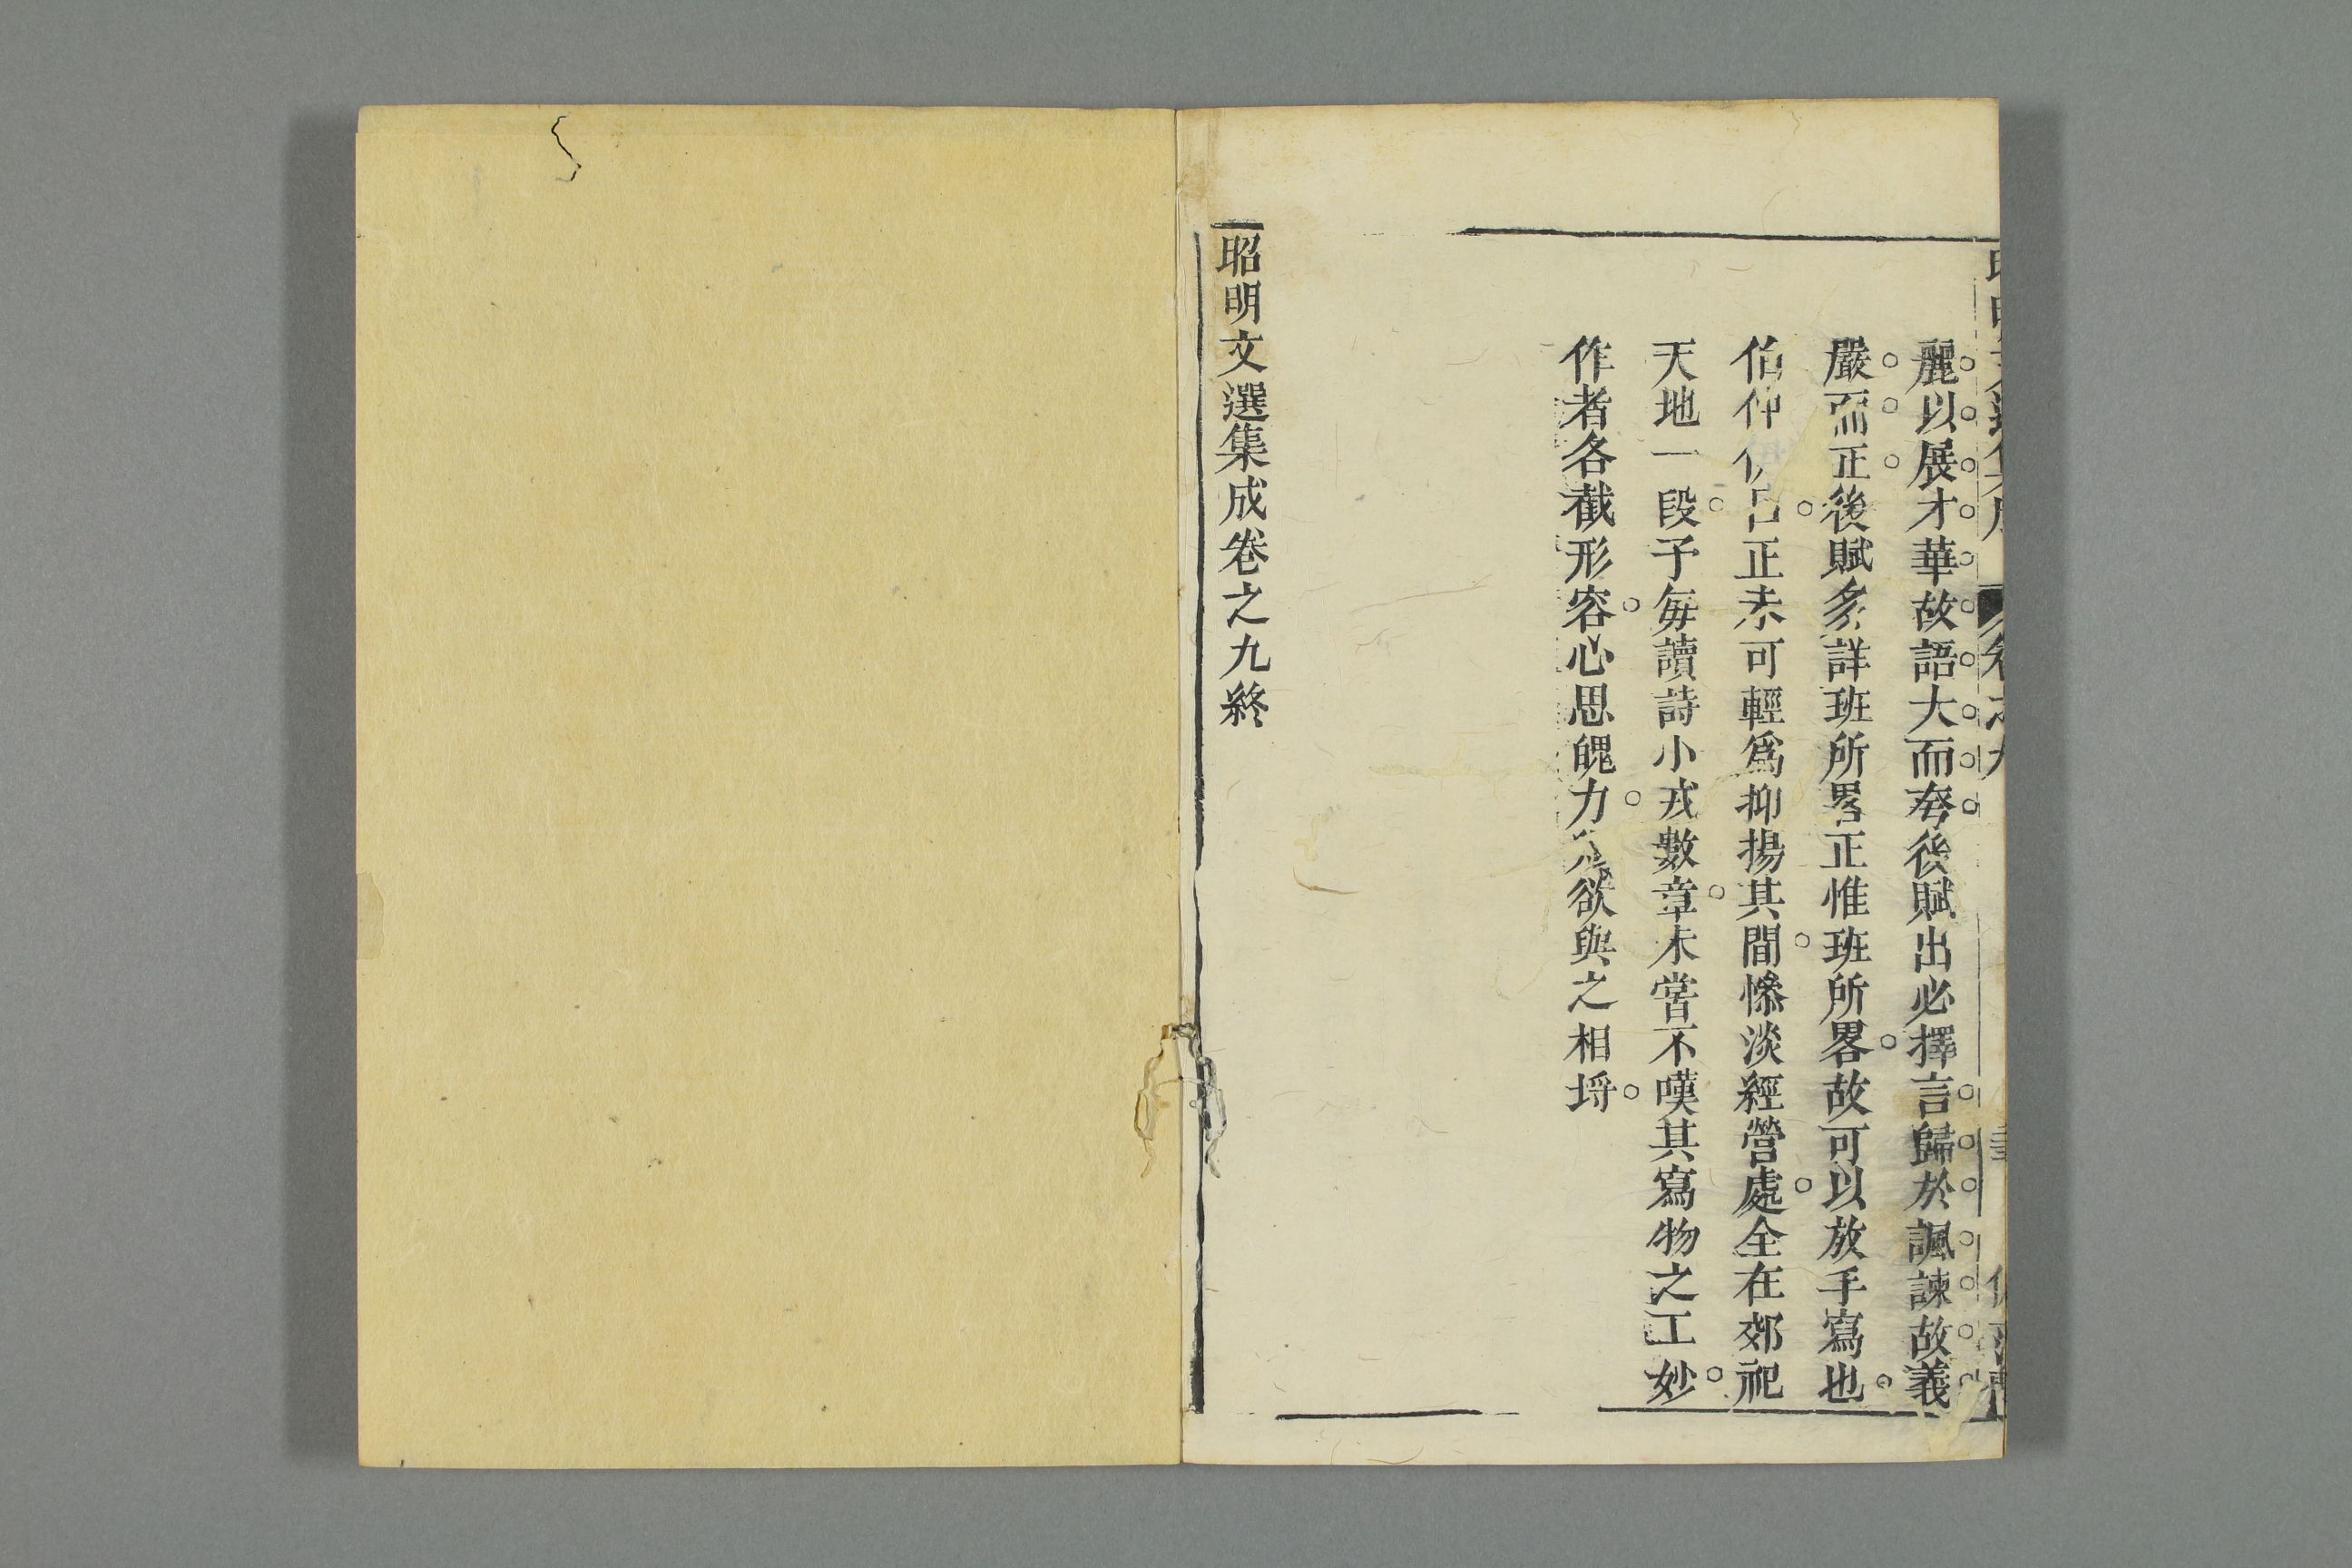 麗以展才華故語大而夸後賦出必擇言歸於諷諫故義
嚴而正後賦多詳班所畧正惟班所畧故可以放手寫也
伯仲正未可輕爲抑揚其間慘淡經營處全在郊祀
天地一段予每讀詩小戎數章未嘗不嘆其寫物之工妙
作者各截形容心思魄力欲與之相埒
昭明文選集成卷之九終